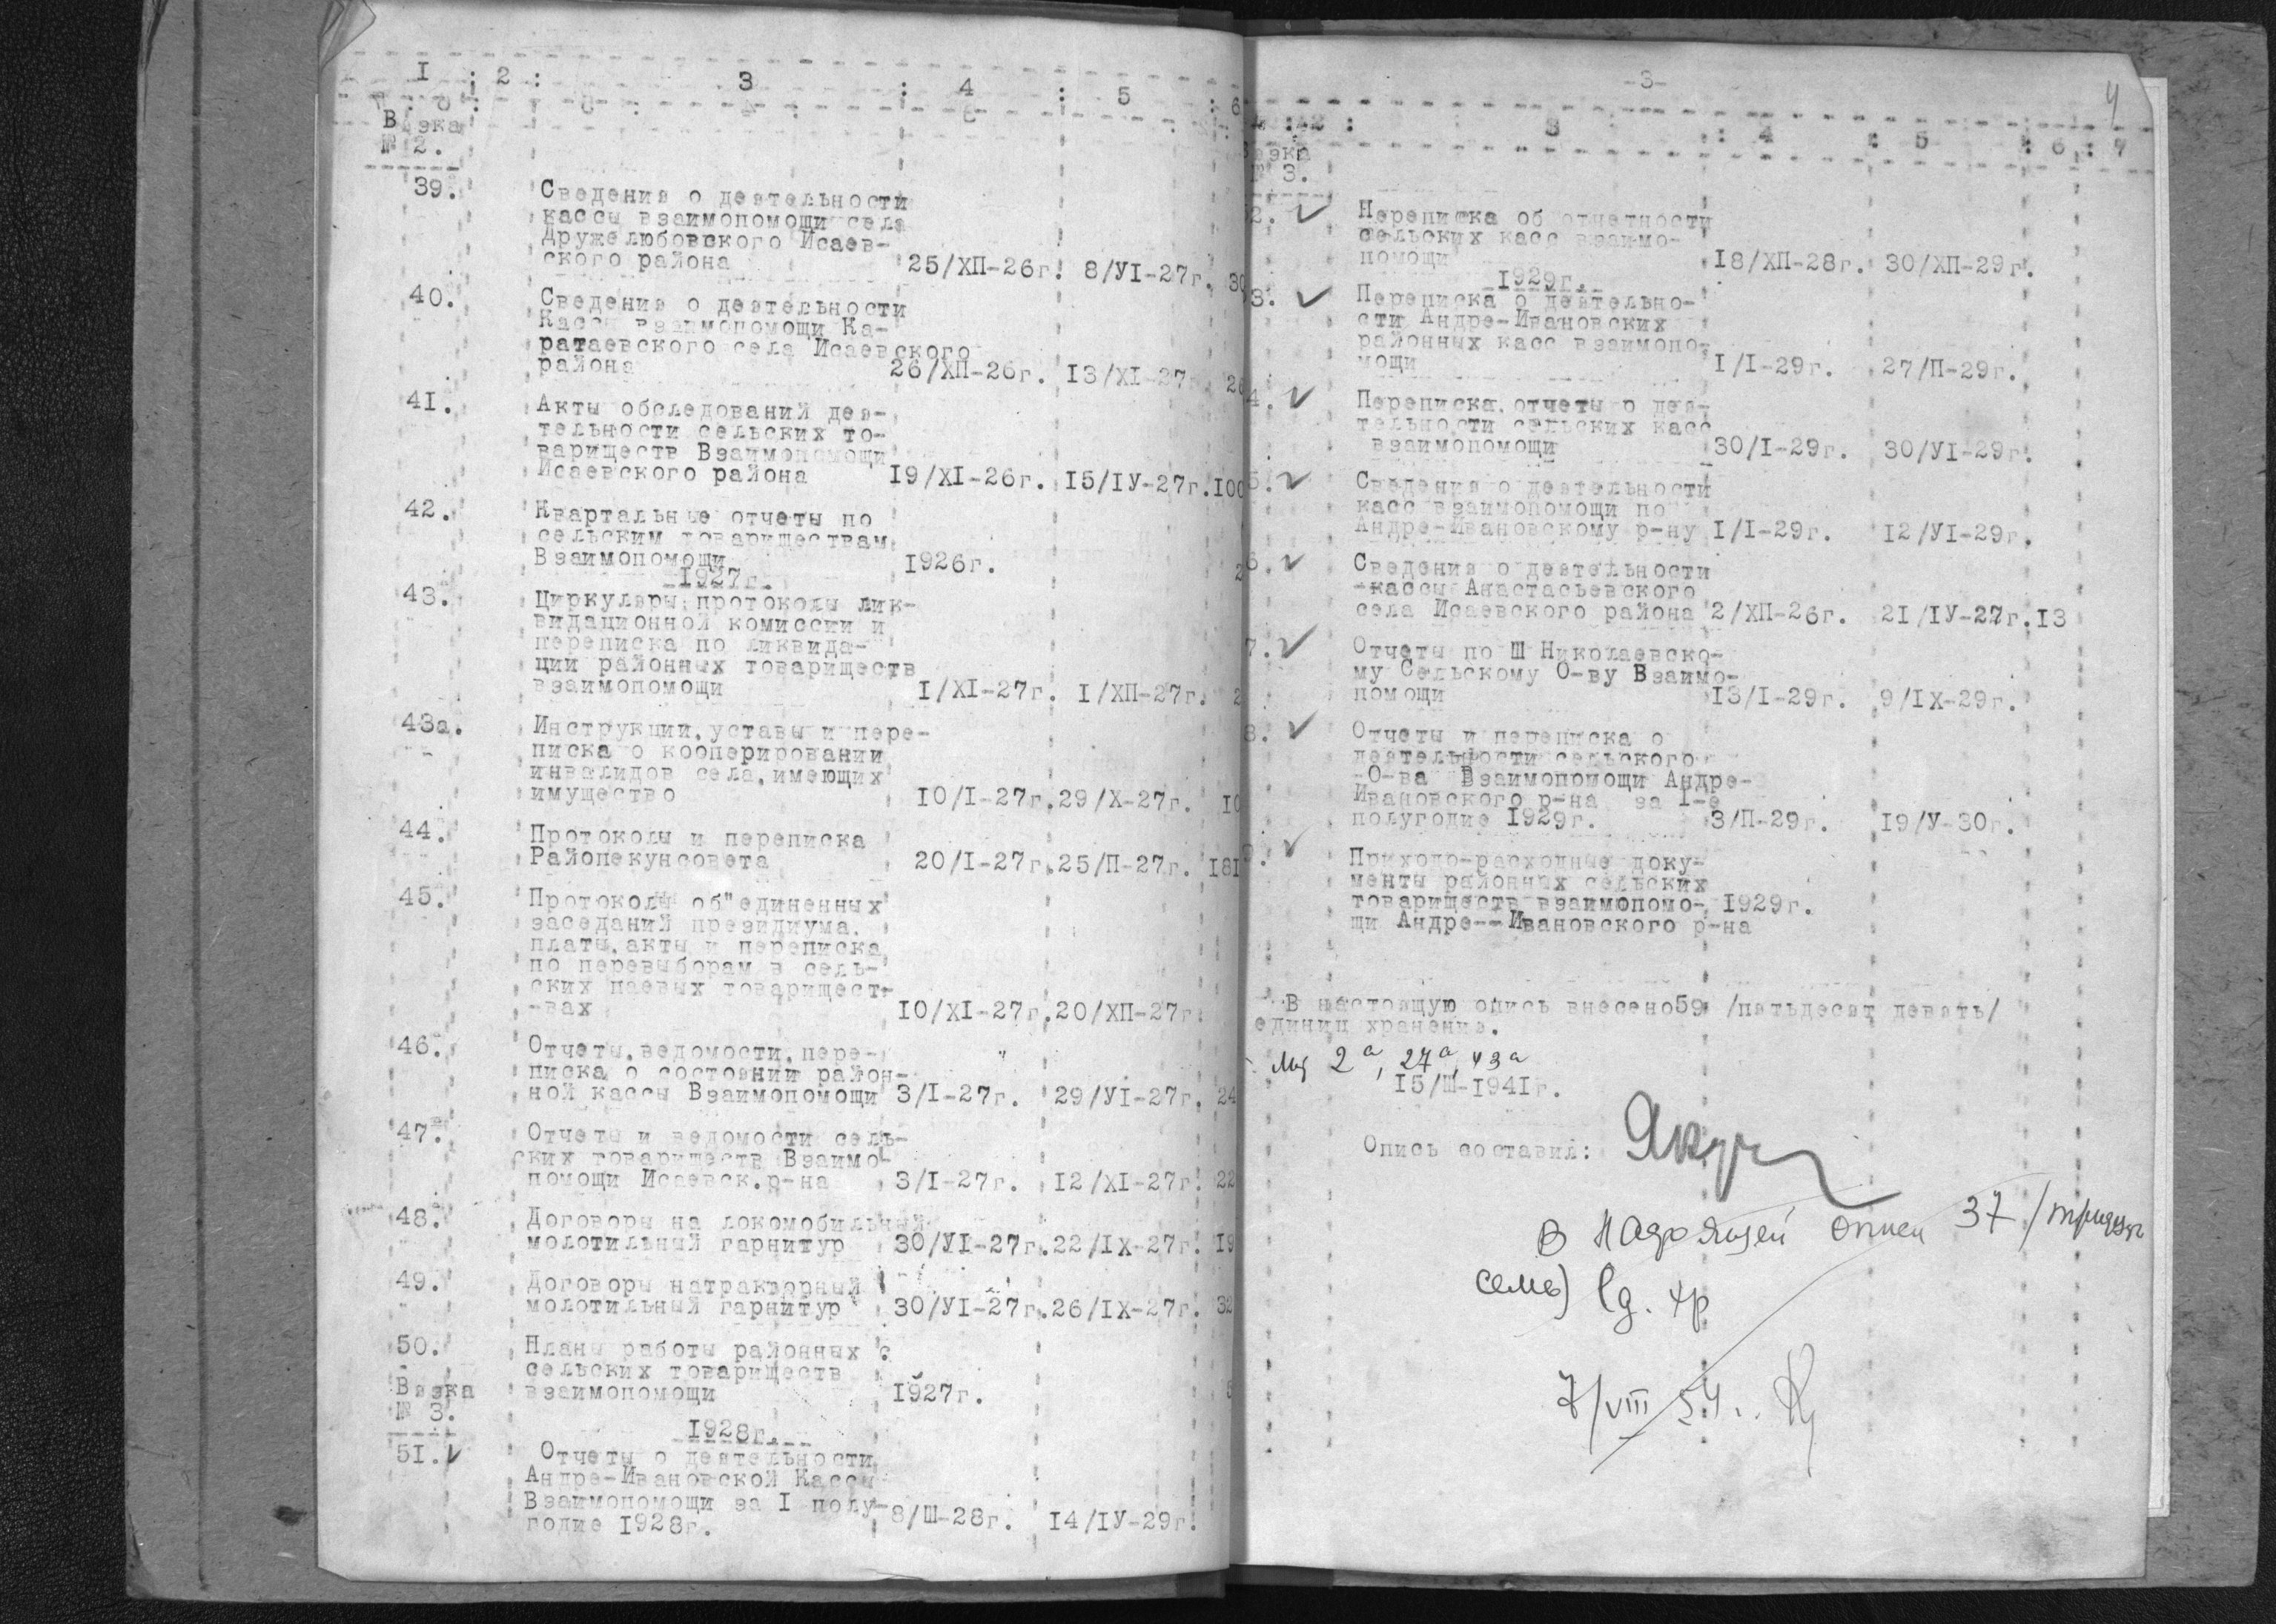 I : 2 : 3 : 4 : 5 : 6
Вязка
№ 2.
39. Сведения о деятельности
кассы взаимопомощи села
Дружелюбовского Исаев-
ского района 25/ХП-26г. 8/УI-27г. 30
40. Сведения о деятельности
Кассы взаимопомощи Ка-
ратаевского села Исаевского
района 26/ХП-26г. 13/XI-27г. 26
41. Акты обследований дея-
тельности сельских то-
вариществ Взаимопомощи
Исаевского района 19/XI-26г. 15/IУ-27г. 100
42. Квартальные отчеты по
сельским товариществам
Взаимопомощи 1926г. 2
1927г.
43. Циркуляры, протоколы лик-
видационной комиссии и
переписка по ликвида-
ции районных товариществ
взаимопомощи 1/XI-27г. 1/ХП-27г. 2
43а. Инструкции, уставы и пере-
писка о кооперировании
инвалидов села, имеющих
имущество 10/I-27г. 29/X-27г. 10
44. Протоколы и переписка
Райопекунсовета 20/I-27г. 25/П-27г. 181
45. Протоколы об"единенных
заседаний президиума,
платы, акты и переписка
по перевыборам в сель-
ских паевых товарищест-
-вах 10/XI-27г. 20/ХП-27г.
46. Отчеты, ведомости, пере-
писка о состоянии район-
ной кассы Взаимопомощи 3/I-27г. 29/УI-27г. 24
47. Отчеты и ведомости сель-
ских товариществ Взаимо-
помощи Исаевск.р-на 3/I-27г. 12/XI-27г. 22
48. Договоры на локомобильный
молотильный гарнитур 30/УI-27г. 22/IX-27г. 19
49. Договоры натракторный
молотильный гарнитур 30/УI-27г. 26/IX-27г. 32
50. Планы работы районных с
сельских товариществ
Вязка взаимопомощи 1927г.
№ 3.
1928г.
51. ✓ Отчеты о деятельности
Андре-Ивановской Кассы
Взаимопомощи за I полу-
годие 1928г. 8/Ш-28г. 14/IУ-29г.
-3-
4
: 2 : 3 : 4 : 5 : 6 : 7
вязка
№ 3.
2. ✓ Переписка об отчетности
сельских касс взаимо-
помощи 18/ХП-28г. 30/ХП-29г.
1929г.
3. ✓ Переписка о деятельно-
сти Андре-Ивановских
районных касс взаимопо-
мощи 1/I-29г. 27/П-29г.
4. ✓ Переписка, отчеты о дея-
тельности сельских касс
взаимопомощи 30/I-29г. 30/УI-29г.
5. ✓ Сведения о деятельности
касс взаимопомощи по
Андре-Ивановскому р-ну 1/I-29г. 12/УI-29г.
6. ✓ Сведения о деятельности
-кассы Анастасьевского
села Исаевского района 2/ХП-26г. 21/IУ-27г. 13
7. ✓ Отчеты по Ш Николаевско-
му Сельскому О-ву Взаимо-
помощи 13/I-29г. 9/IX-29г.
8. ✓ Отчеты и переписка о
деятельности сельского
-О-ва Взаимопомощи Андре-
Ивановского р-на за I-е
полугодие 1929г. 3/П-29г. 19/У-30г.
9. ✓ Приходо-расходные доку-
менты районных сельских
товариществ взаимопомо- 1929г.
щи Андре--Ивановского р-на
В настоящую опись внесено 59 /пятьдесят девять/
единиц хранения.
2а, 27а, 43а
15/Ш-1941г.
Опись составил:
В надоящей описи 37 /тридцат
семь) ед. хр
7/VIII 54 г.